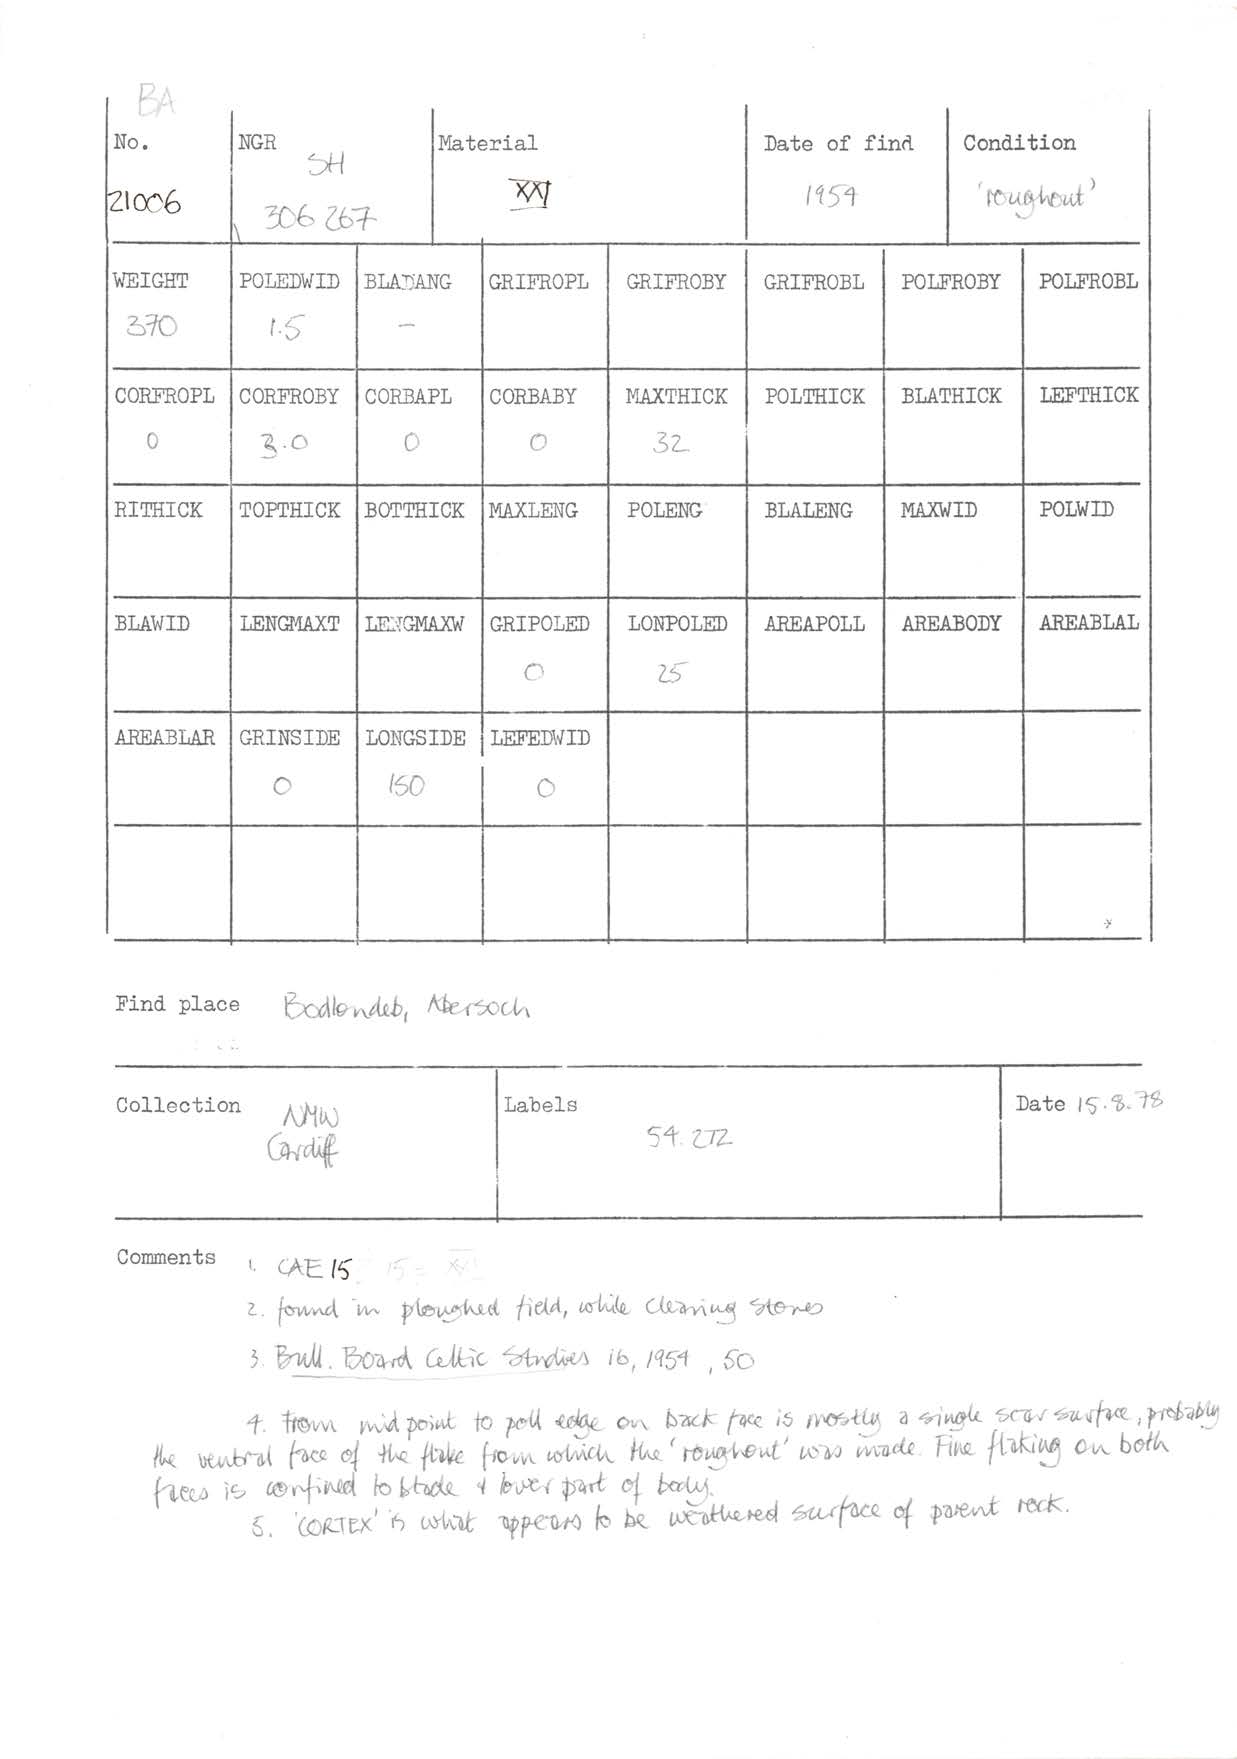 BA
No. NGR Material Date of find Condition
SH
21006 306 267 XXI 1954 'roughout'
WEIGHT POLEDWID BLADANG GRIFROPL GRIFROBY GRIFROBL POLFROBY POLFROBL
370 1.5 -
CORFROPL CORFROBY CORBAPL CORBABY MAXTHICK POLTHICK BLATHICK LEFTHICK
0 3.0 0 0 32
RITHICK TOPTHICK BOTTHICK MAXLENG POLENG BLALENG MAXWID POLWID
BLAWID LENGMAXT LENGMAXW GRIPOLED LONPOLED AREAPOLL AREABODY AREABLAL
0 25
AREABLAR GRINSIDE LONGSIDE LEFEDWID
0 150 0
Find place Bodlondeb, Abersoch
Collection NMW Labels Date 15.8.78
Cardiff 54.272
Comments 1. CAE 15
2. found in ploughed field, while clearing stones
3. Bull. Board Celtic Studies 16, 1954, 50
4. From mid point to poll edge on back face is mostly a single scar surface, probably
the ventral face of the flake from which the 'roughout' was made. Fine flaking on both
faces is confined to blade + lower part of body.
5. 'CORTEX' is what appears to be weathered surface of parent rock.